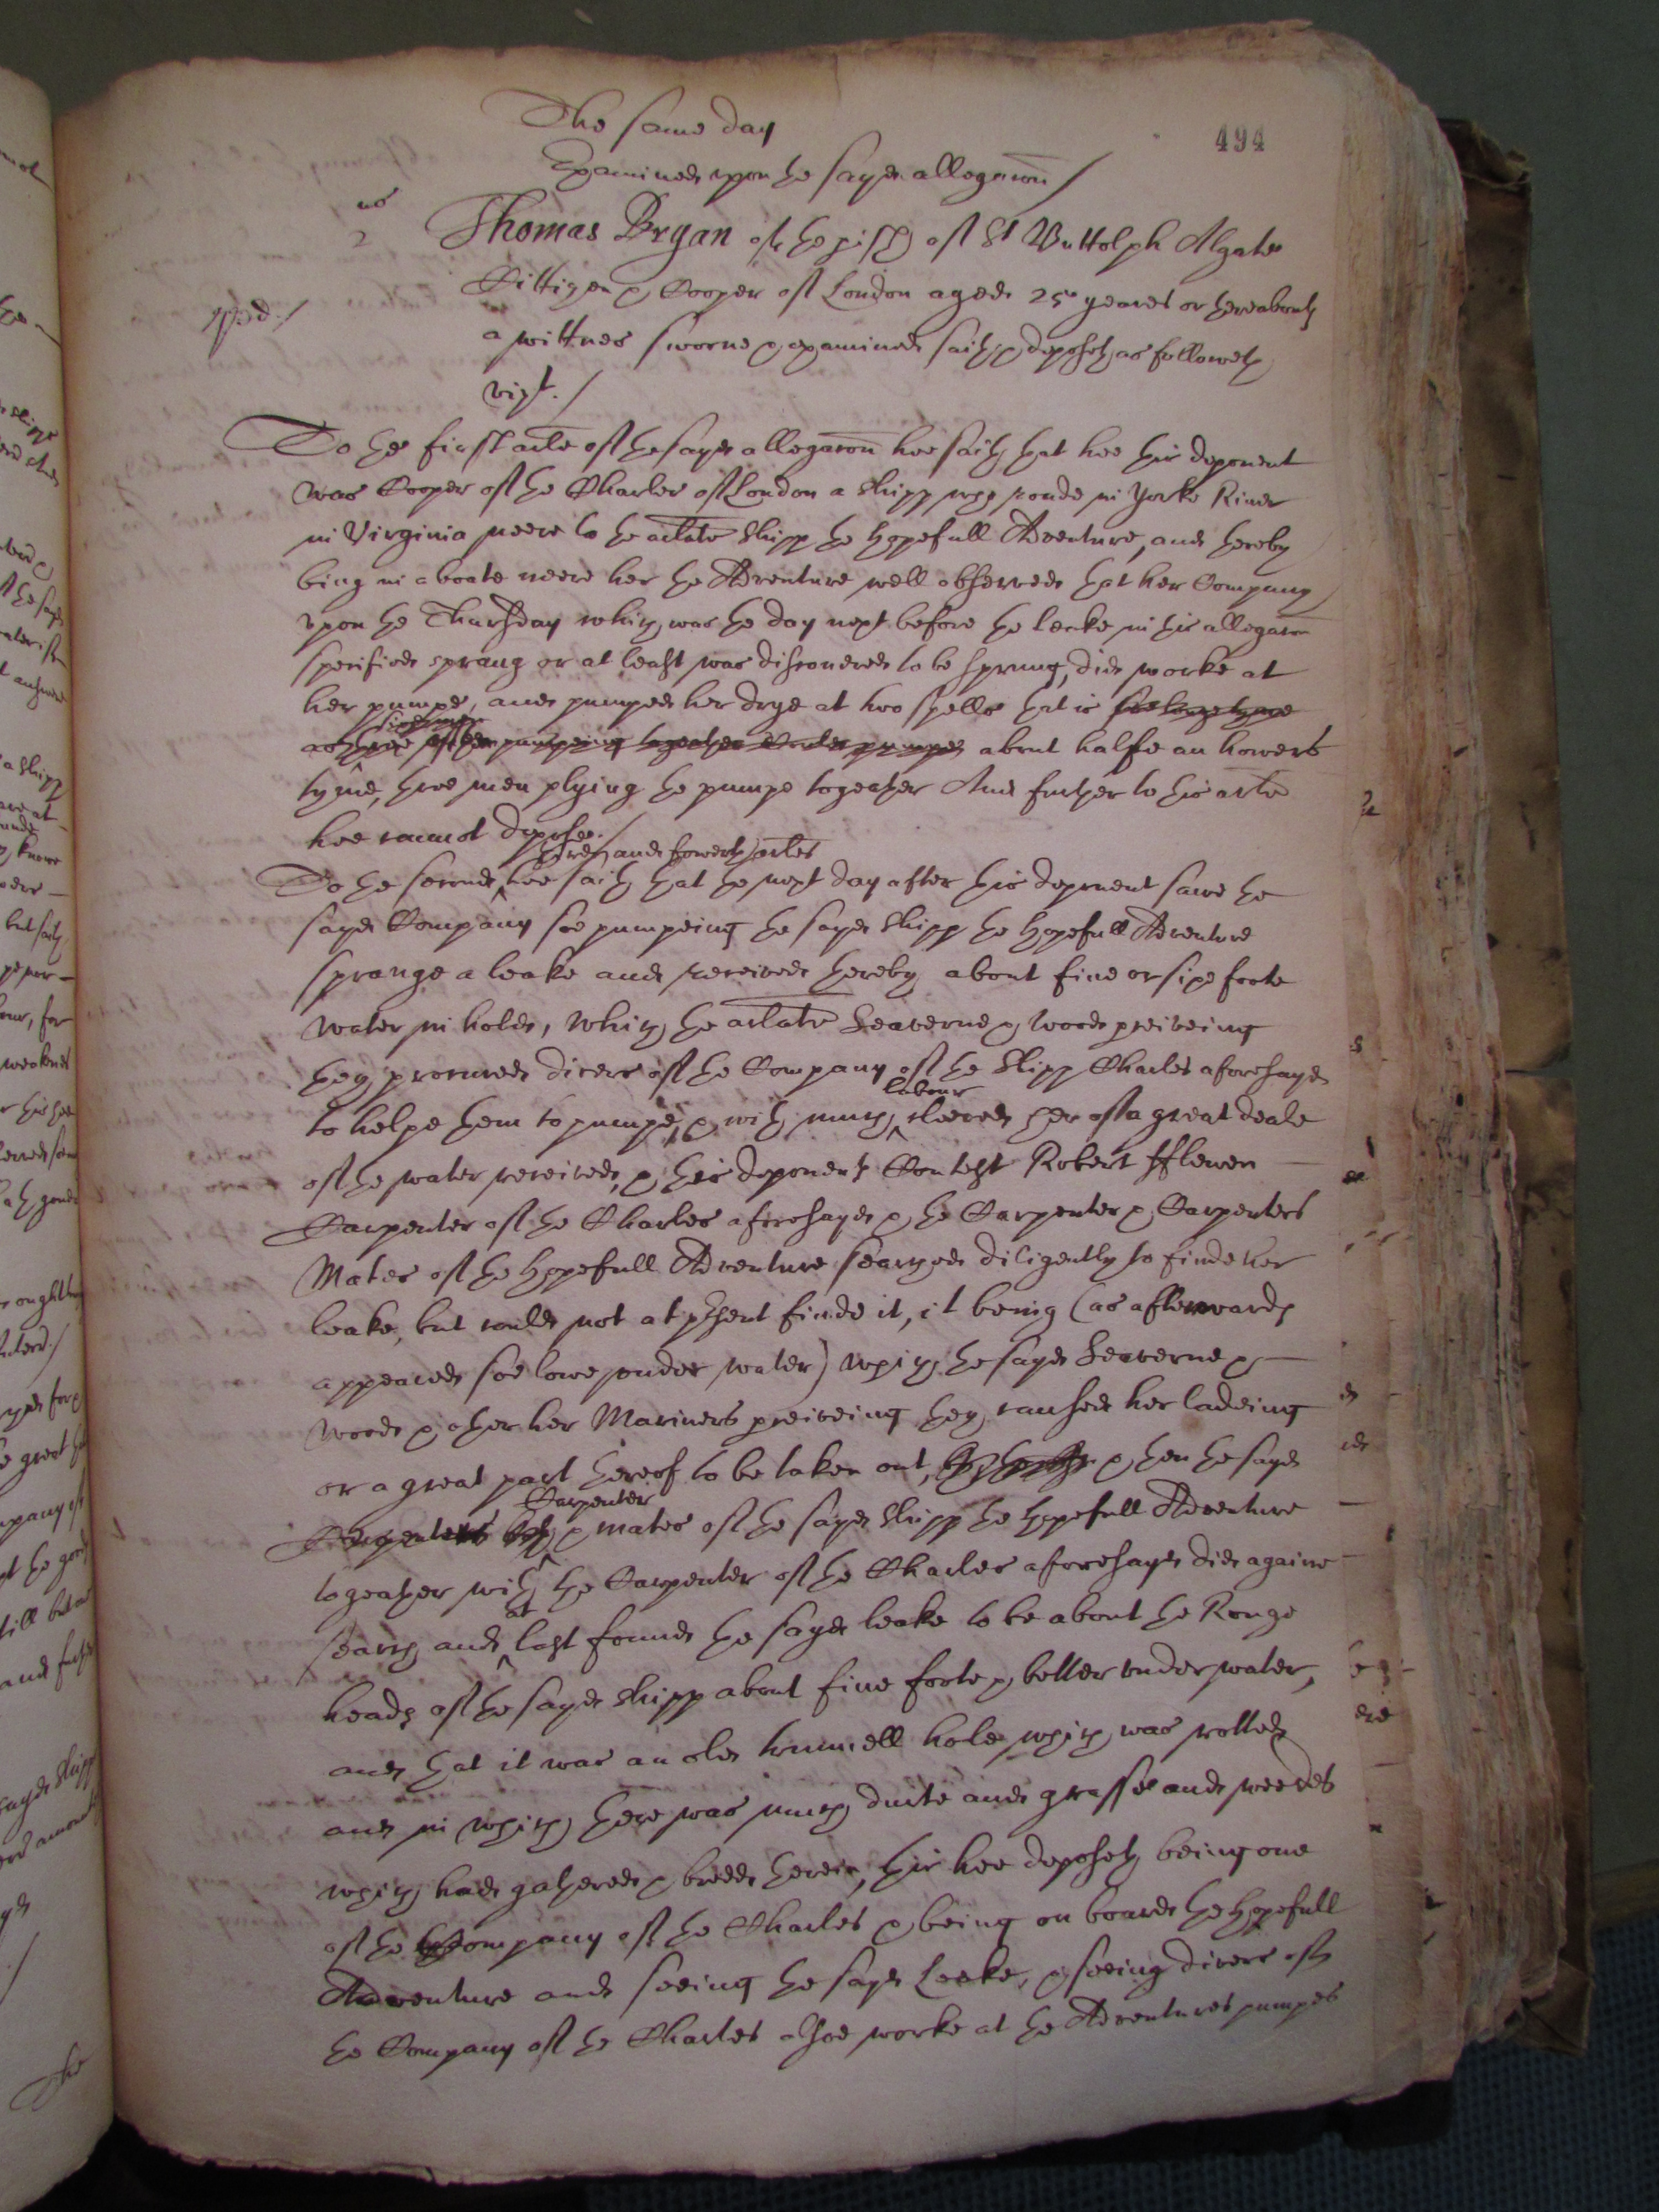 The same day
494
Examined upon the sayd allegaon/
us
2
Thomas Bryan of the pish of St Buttolph Algate
Cittizen & Cooper of London aged 25 yeares or thereabouts
a wittnes sworne & examined saith & deposeth as followeth
vizt./
rp.d./
To the first arle of the sayd allegaon hee saith that hee this deponent
was Cooper of the Charles of London a shipp wch roade in Yorke River
in Virginia neere to the arlate shipp the Hopefull Adventure, and thereby
being in a boate neere her the Adventure well observed that her Company
upon the Thursday which was the day next before the leake in this allegaon
specified sprang or at least was discovered to be sprung, did worke at
her pumpe, and pumped her drye at two spells that is
about halfe an howers
tyme, three men plying the pumpe togeather And further to this arle
hee cannot depose./
To the second third and fowerth arles hee saith that the next day after this deponent sawe the
sayd Company soe pumpeing the sayd shipp the Hopefull Adventure
sprange a leake and received thereby about five or sixe foote
water in hold, which the arlate Seaverne & Wood pceiveing
they procured divers of the Company of the shipp Charles aforesayd
to helpe them to pumpe, & with much labour cleered her of a great deale
of the water received, & this deponents Contest Robert Fflewen
Carpenter of the Charles aforesayd & the Carpenter & Carpenters
Mates of the Hopefull Adventure searched diligently to finde her
leake, but could not at psent finde it, it being (as afterwards
appeared soe lowe under water) which the sayd Seaverne &
Wood & other her Mariners pceiveing they caused her ladeing
or a great part thereof to be taken out, & then the sayd
Carpenter & mates of the sayd shipp the Hopefull Adventure
togeather with the Carpenter of the Charles aforesayd did againe
search and at last found the sayd leake to be about the Rouge
heads of the sayd shipp about five foote & better under water,
and that it was an old trunnell hole which was rotted
and in which there was much durte and grasse and weedes
which had gathered & bredd therein, this hee deposeth being one
of the Company of the Charles & being on board the Hopefull
Adventure and seeing the sayd Leake, & seeing divers of
the Company of the Charles alsoe worke at the Adventures pumpes